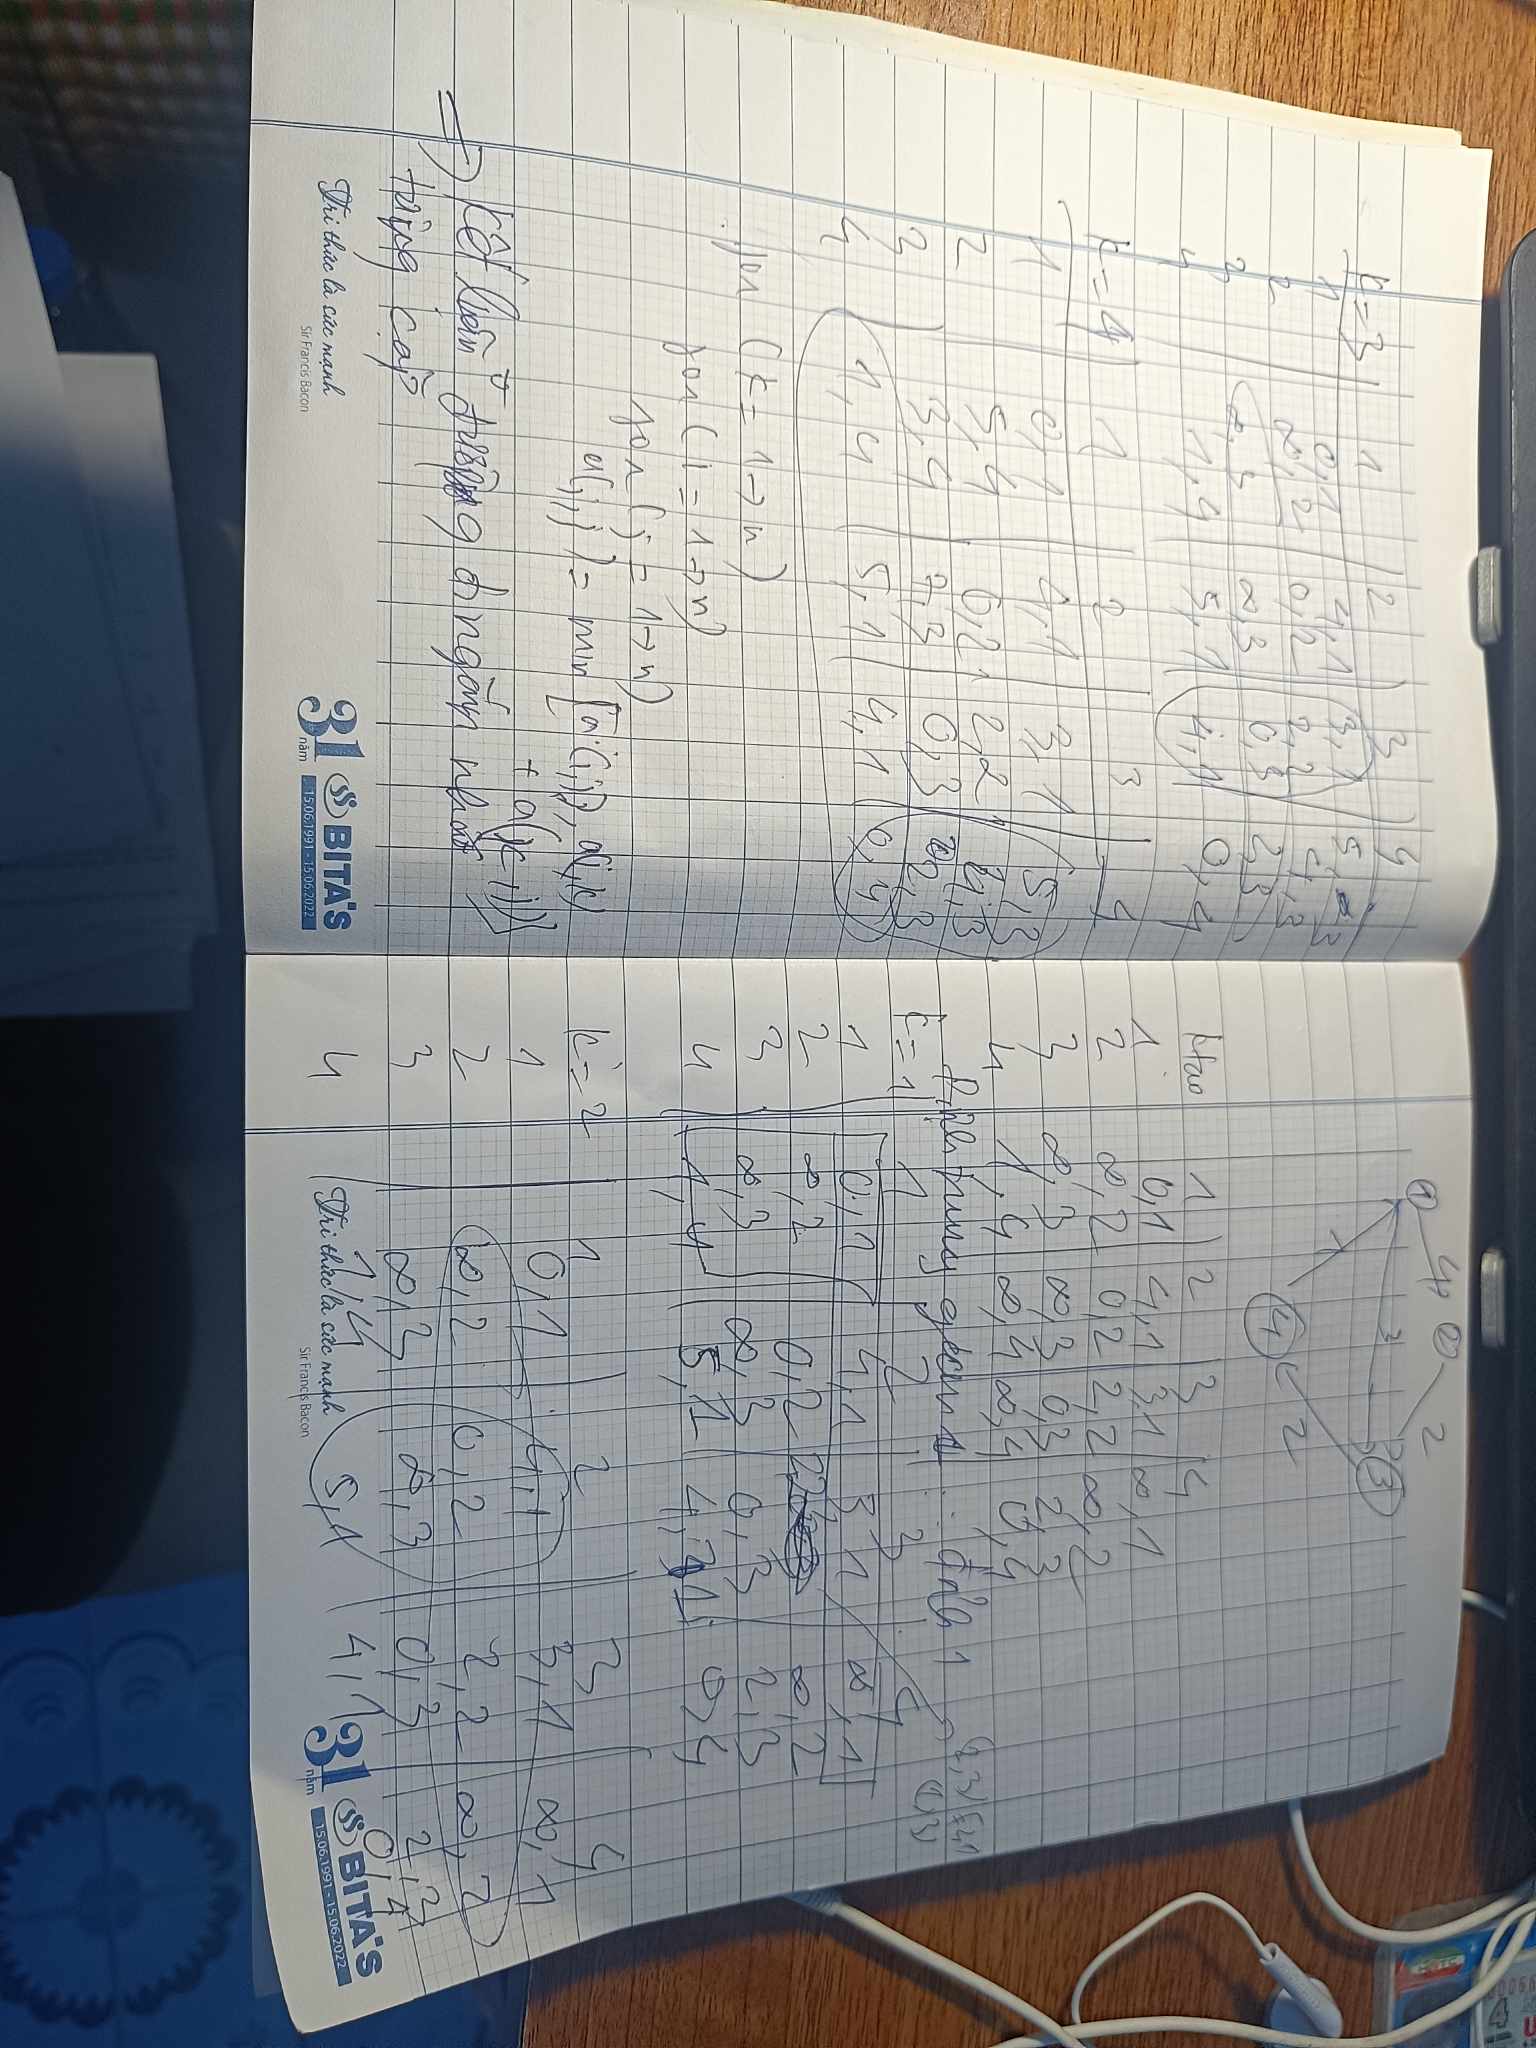 K=3 1 2 3 4
1 0,1 4,1 3,1 5,3
2 ∞,2 0,2 2,2 4,3
3 ∞,3 ∞,3 0,3 2,3
4 1,4 5,1 4,1 0,4
K=4 1 2 3 4
1 0,1 4,1 3,1 5,3
2 5,4 0,2 2,2 4,3
3 3,4 7,3 0,3 2,3
4 1,4 5,1 4,1 0,4
for (k=1→n)
for (i=1→n)
for (j=1→n)
a(i,j) = min [a(i,j), a(i,k)
+ a(k,j)]
⇒ Kết luận đường đi ngắn nhất
từng cặp
Tri thức là sức mạnh
Sir Francis Bacon
31 năm BITA'S
15.06.1991 - 15.06.2022
1 4 2 2
3 3
1 4 2
Ktạo 1 2 3 4
1 0,1 4,1 3,1 ∞,1
2 ∞,2 0,2 2,2 ∞,2
3 ∞,3 ∞,3 0,3 2,3
4 1,4 ∞,4 ∞,4 0,4
trung gian : đỉnh 1
K=1 1 2 3 4
1 0,1 4,1 3,1 ∞,1
2 ∞,2 0,2 22 ∞,2
3 ∞,3 ∞,3 0,3 2,3
4 1,4 5,1 4,1 0,4
K=2 1 2 3 4
1 0,1 4,1 3,1 ∞,1
2 ∞,2 0,2 2,2 ∞,2
3 ∞,3 ∞,3 0,3 2,3
4 1,4 5,1 4,1 0,4
Tri thức là sức mạnh
Sir Francis Bacon
31 năm BITA'S
15.06.1991 - 15.06.2022